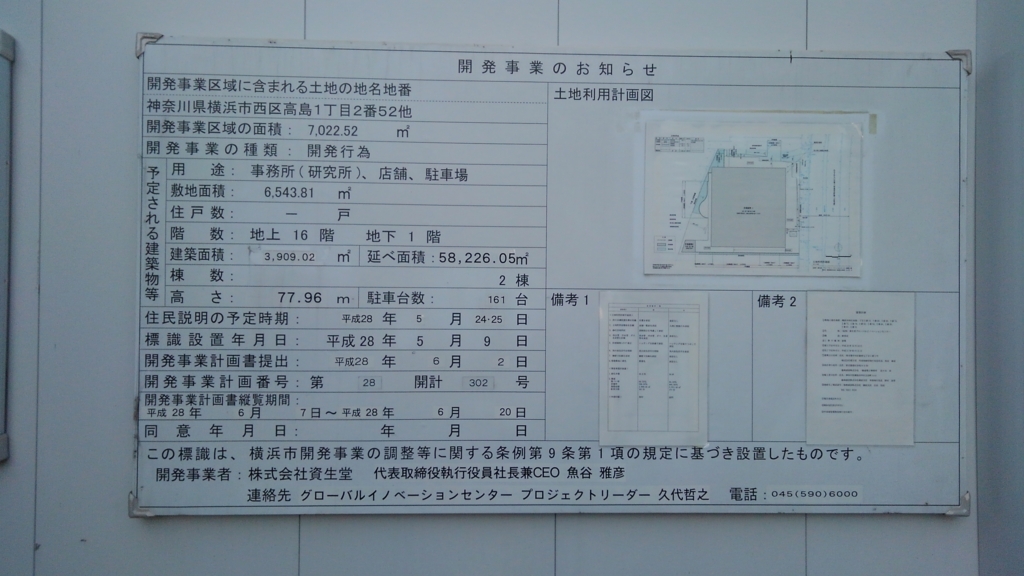 開発事業のお知らせ
開発事業区域に含まれる土地の地名地番
神奈川県横浜市西区高島1丁目2番52他
開発事業区域の面積： 7,022.52 ㎡
開発事業の種類：開発行為
予定される建築物等
用途：事務所（研究所）、店舗、駐車場
敷地面積： 6,543.81 ㎡
住戸数： － 戸
階数：地上 16 階 地下 1 階
建築面積： 3,909.02 ㎡ 延べ面積：58,226.05㎡
棟数： 2 棟
高さ： 77.96 m 駐車台数： 161 台
住民説明の予定時期： 平成28 年 5 月 24·25 日
標識設置年月日： 平成28 年 5 月 9 日
開発事業計画書提出： 平成28 年 6 月 2 日
開発事業計画番号：第 28 開計 302 号
開発事業計画書縦覧期間：
平成 28 年 6 月 7 日～平成 28 年 6 月 20 日
同意年月日： 年 月 日
土地利用計画図
備考1
備考2
この標識は、横浜市開発事業の調整等に関する条例第9条第1項の規定に基づき設置したものです。
開発事業者：株式会社資生堂 代表取締役執行役員社長兼CEO 魚谷 雅彦
連絡先 グローバルイノベーションセンター プロジェクトリーダー 久代哲之 電話：045(590)6000